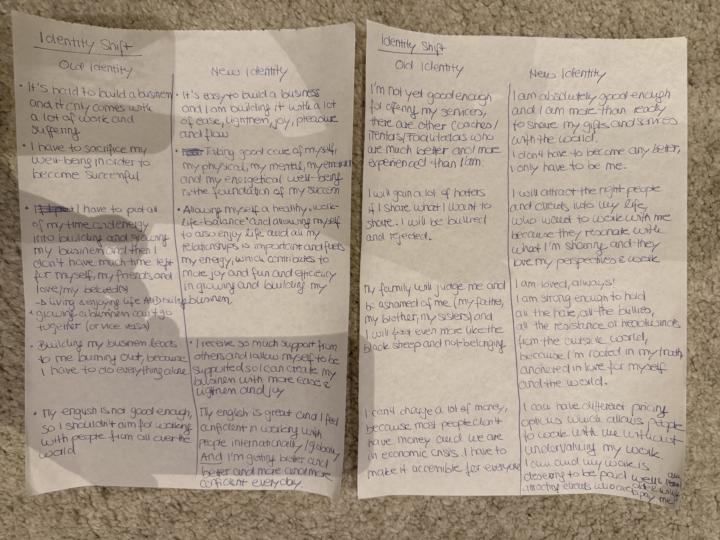 Identity Shift
Old Identity
• It's hard to build a business
and it only comes with
a lot of work and
suffering
• I have to sacrifice my
well-being in order to
become successful
• I have to put all
of my time and energy
into building and growing
my business and then I
don't have much time left
for myself, my friends and
love/my beloved(s)
→ living & enjoying life AND building
& growing a business can't go
together (or vice versa)
• Building my business leads
to me burning out, because
I have to do everything alone
• My english is not good enough,
so I shouldn't aim for working
with people from all over the
world
New Identity
• It's easy to build a business
and I am building it with a lot
of ease, lightness, joy, pleasure
and flow
• Taking good care of myself,
my physical, my mental, my emotional
and my energetical well-being
is the foundation of my success
• Allowing myself a healthy "work-
life-balance" and allowing myself
to also enjoy life and all my
relationships is important and fuels
my energy, which contributes to
more joy and fun and efficiency
in growing and building my
business.
• I receive so much support from
others and I allow myself to be
supported so I can create my
business with more ease &
lightness and joy
My english is great and I feel
confident in working with
people internationally/globally
And I'm getting better and
better and more and more
confident everyday.
Identity Shift
Old Identity
I'm not yet good enough
for offering my services,
there are other coaches/
mentors/facilitators who
are much better and more
experienced than I am.
I will gain a lot of haters
if I share what I want to
share. I will be bullied
and rejected.
My family will judge me and
be ashamed of me (my father,
my brother, my sisters) and
I will feel even more like the
black sheep and not belonging
I can't charge a lot of money,
because most people don't
have money and we are
in economic crisis. I have to
make it accessible for everyone
New Identity
I am absolutely good enough
and I am more than ready
to share my gifts and services
with the world.
I don't have to become any better,
I only have to be me.
I will attract the right people
and clients into my life,
who want to work with me
because they resonate with
what I'm sharing and they
love my perspectives & work
I am loved, always!
I am strong enough to hold
all the hate, all the bullies,
all the resistance or
from the outside world,
because I'm rooted in my truth,
anchored in love for myself
and the world.
I can have different pricing
options which allows people
to work with me without
undervaluing my work.
I am and my work is
deserving to be paid well. I am
attracting clients who are
to pay me!